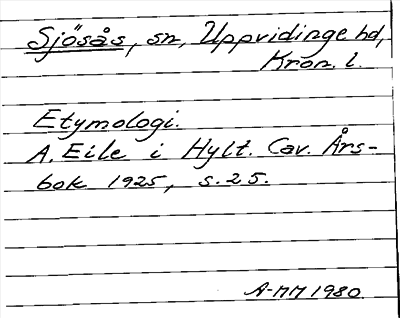 Sjösås, sn, Uppvidinge hd,
Kron. l.
Etymologi.
A. Eile i Hylt. Cav. Års-
bok 1925, s. 25.
A-MM 1980